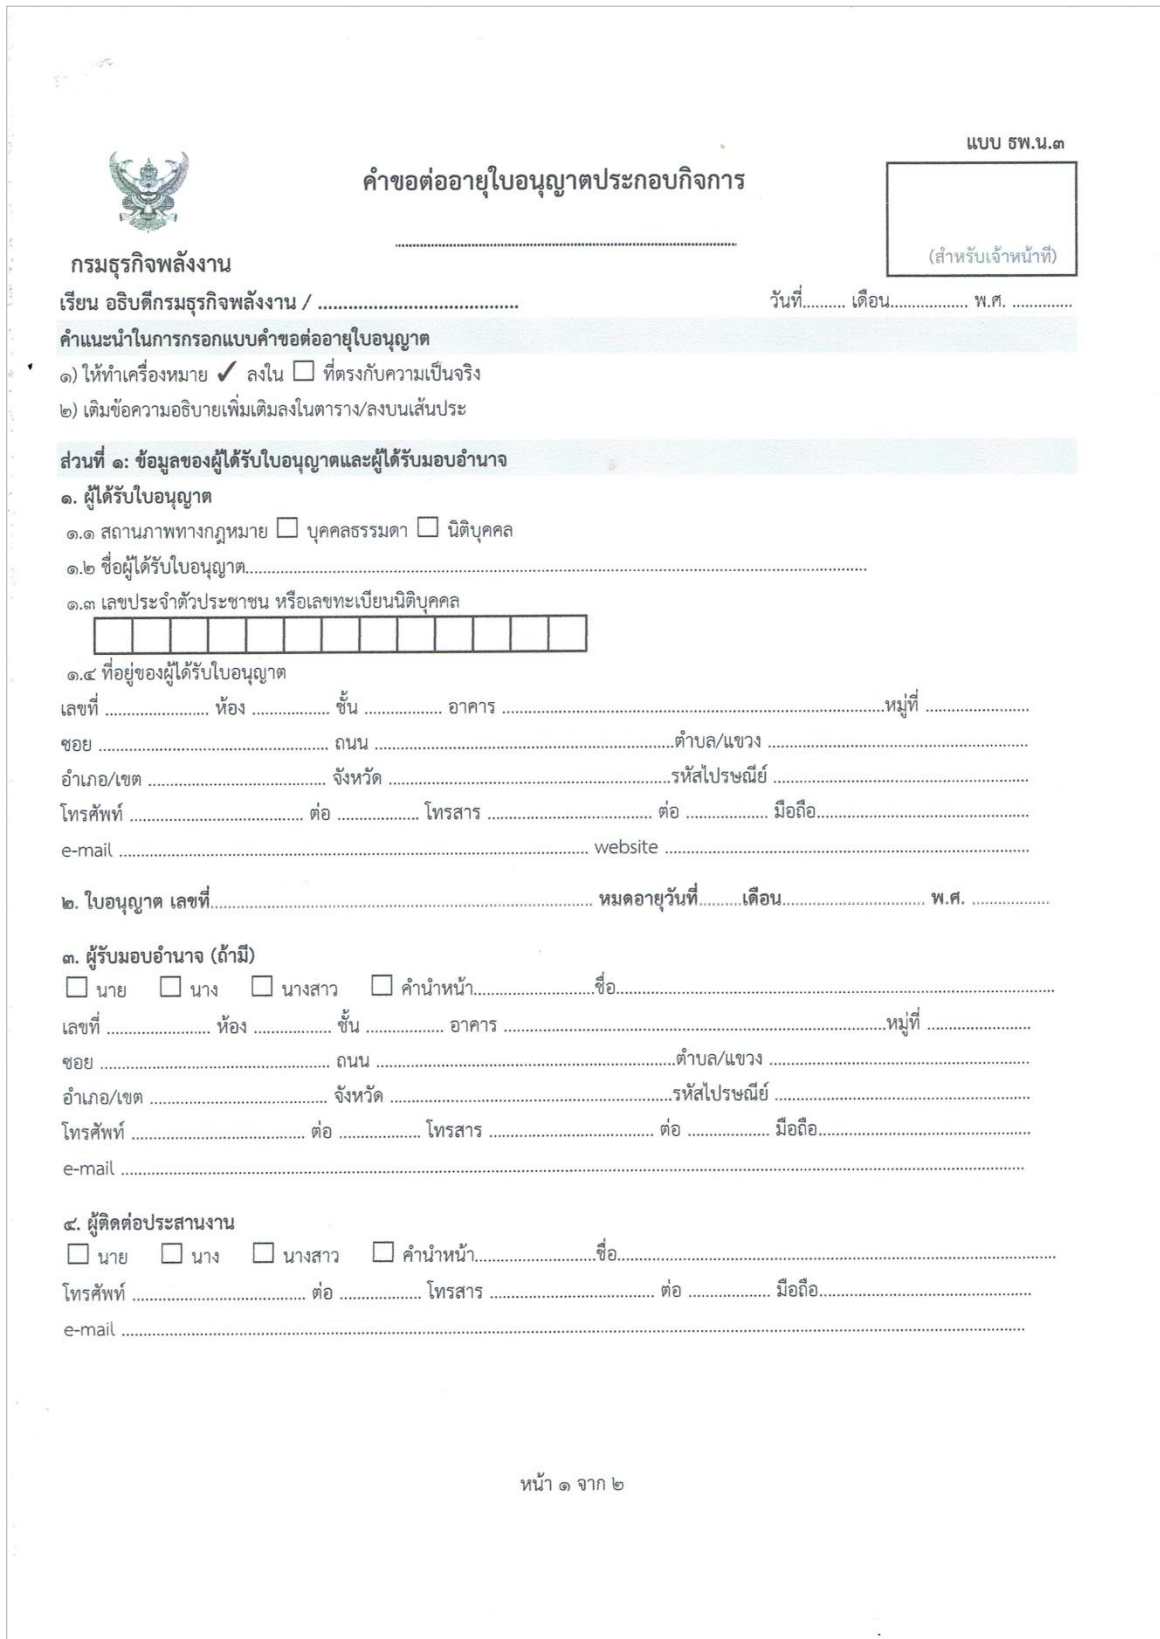 แบบ ธพ.น.๓
คำขอต่ออายุใบอนุญาตประกอบกิจการ
................................................................
(สำหรับเจ้าหน้าที่)
กรมธุรกิจพลังงาน
เรียน อธิบดีกรมธุรกิจพลังงาน / ...................................... วันที่.......... เดือน.................. พ.ศ. ..............
คำแนะนำในการกรอกแบบคำขอต่ออายุใบอนุญาต
๑) ให้ทำเครื่องหมาย ✓ ลงใน ☐ ที่ตรงกับความเป็นจริง
๒) เติมข้อความอธิบายเพิ่มเติมลงในตาราง/ลงบนเส้นประ
ส่วนที่ ๑: ข้อมูลของผู้ได้รับใบอนุญาตและผู้ได้รับมอบอำนาจ
๑. ผู้ได้รับใบอนุญาต
๑.๑ สถานภาพทางกฎหมาย ☐ บุคคลธรรมดา ☐ นิติบุคคล
๑.๒ ชื่อผู้ได้รับใบอนุญาต................................................................
๑.๓ เลขประจำตัวประชาชน หรือเลขทะเบียนนิติบุคคล
๑.๔ ที่อยู่ของผู้ได้รับใบอนุญาต
เลขที่ ........................ ห้อง .................. ชั้น .................. อาคาร ................................................หมู่ที่ ........................
ซอย ........................................ ถนน ................................................ตำบล/แขวง ................................................
อำเภอ/เขต ................................ จังหวัด ................................................รหัสไปรษณีย์ ................................................
โทรศัพท์ ................................ ต่อ .................. โทรสาร ................................ ต่อ .................. มือถือ................................
e-mail ................................................................ website ................................................................
๒. ใบอนุญาต เลขที่................................................................ หมดอายุวันที่..........เดือน................................ พ.ศ. ..................
๓. ผู้รับมอบอำนาจ (ถ้ามี)
☐ นาย ☐ นาง ☐ นางสาว ☐ คำนำหน้า............................ชื่อ................................................................
เลขที่ ........................ ห้อง .................. ชั้น .................. อาคาร ................................................หมู่ที่ ........................
ซอย ........................................ ถนน ................................................ตำบล/แขวง ................................................
อำเภอ/เขต ................................ จังหวัด ................................................รหัสไปรษณีย์ ................................................
โทรศัพท์ ................................ ต่อ .................. โทรสาร ................................ ต่อ .................. มือถือ................................
e-mail ................................................................
๔. ผู้ติดต่อประสานงาน
☐ นาย ☐ นาง ☐ นางสาว ☐ คำนำหน้า............................ชื่อ................................................................
โทรศัพท์ ................................ ต่อ .................. โทรสาร ................................ ต่อ .................. มือถือ................................
e-mail ................................................................
หน้า ๑ จาก ๒